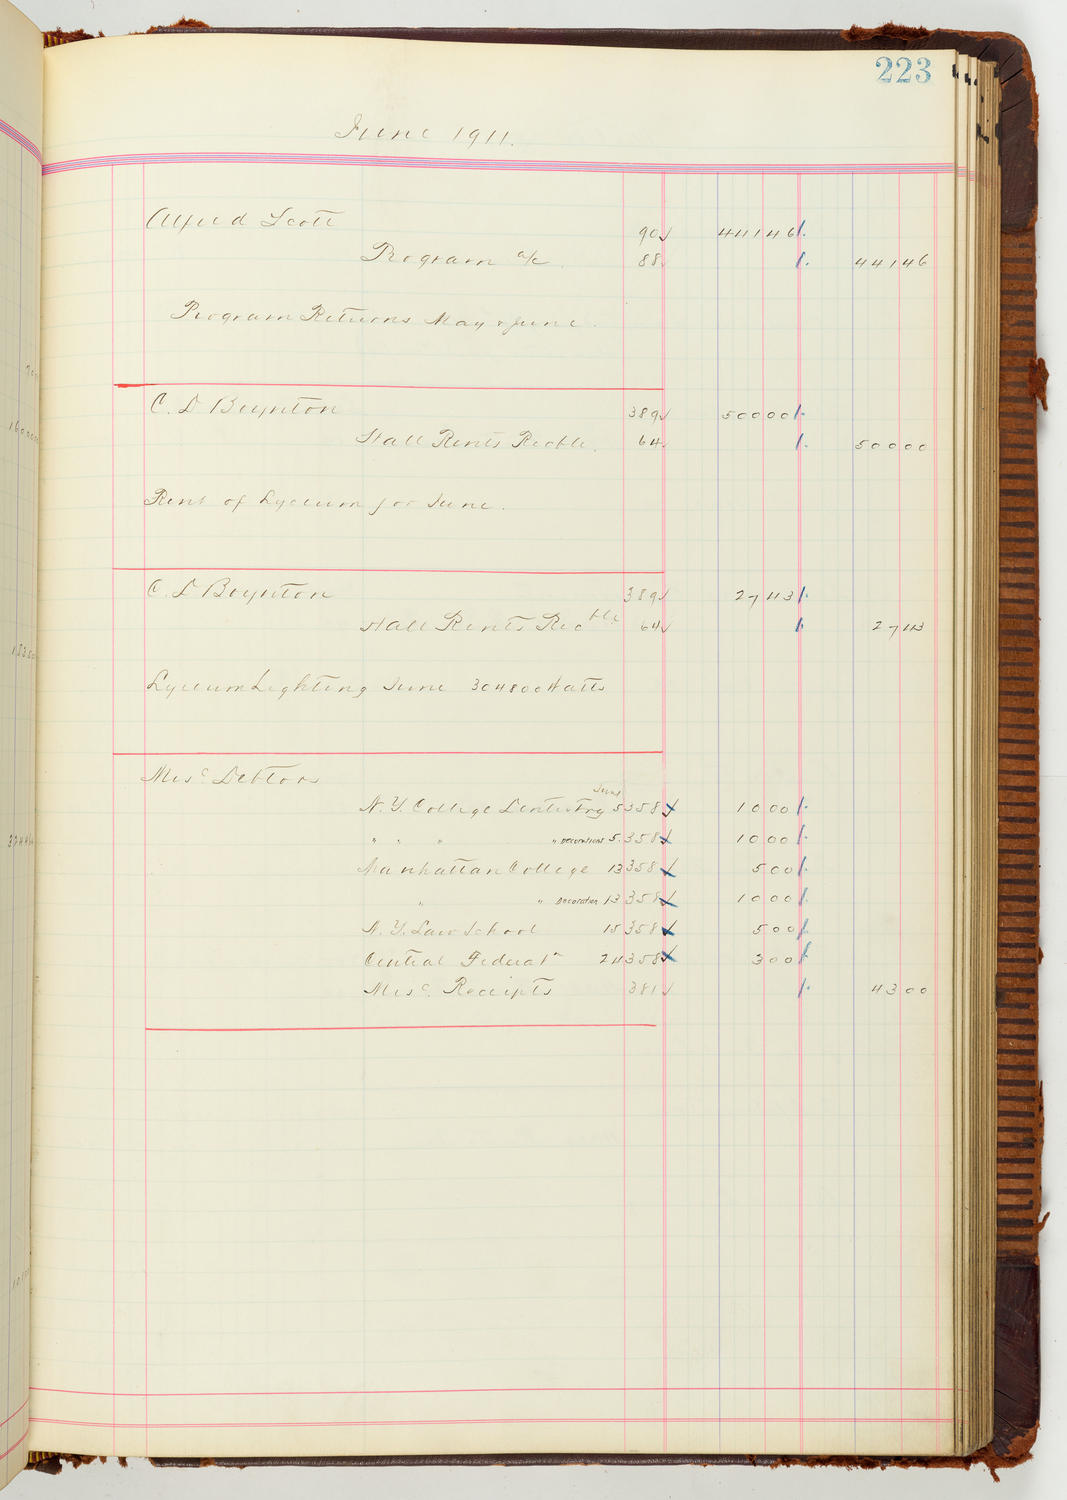 223
June 1911.
Alfred Scott 90 441 46
Program a/c 88 441 46
Program Returns May & June.
C. D Boynton 389 500 00
Hall Rents Recble. 64 500 00
Rent of Lyceum for June.
C. D Boynton 389 27 43
Hall Rents Recble 64 27 43
Lyceum Lighting June 304800 Watts
Misc Debtors
June
N. Y. College Dentistry 5 358 10 00
" " " " Decorations 5. 358 10 00
Manhattan College 13 358 5 00
" " Decoration 13 358 10 00
N. Y. Law School 15 358 5 00
Central Federatn 24 358 3 00
Misc. Receipts 381 43 00